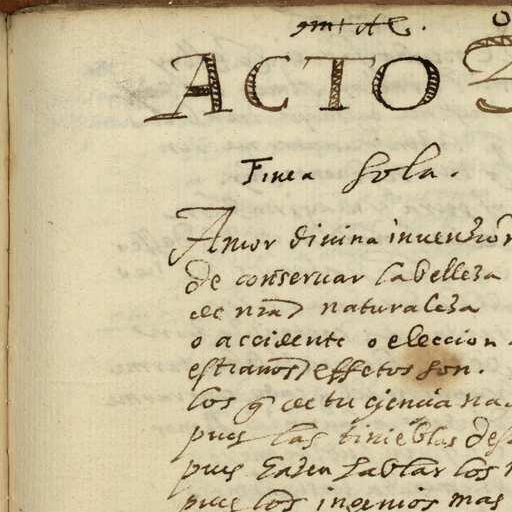 ACTO 3
Finea sola.
Amor diuina inuenzion
de conseruar la belleza
de nra naturaleza
o accidente o eleccion
estraños effetos son.
los q de tu ciencia na
pues las tinieblas des
pues hazen hablar los
pues los ingenios mas